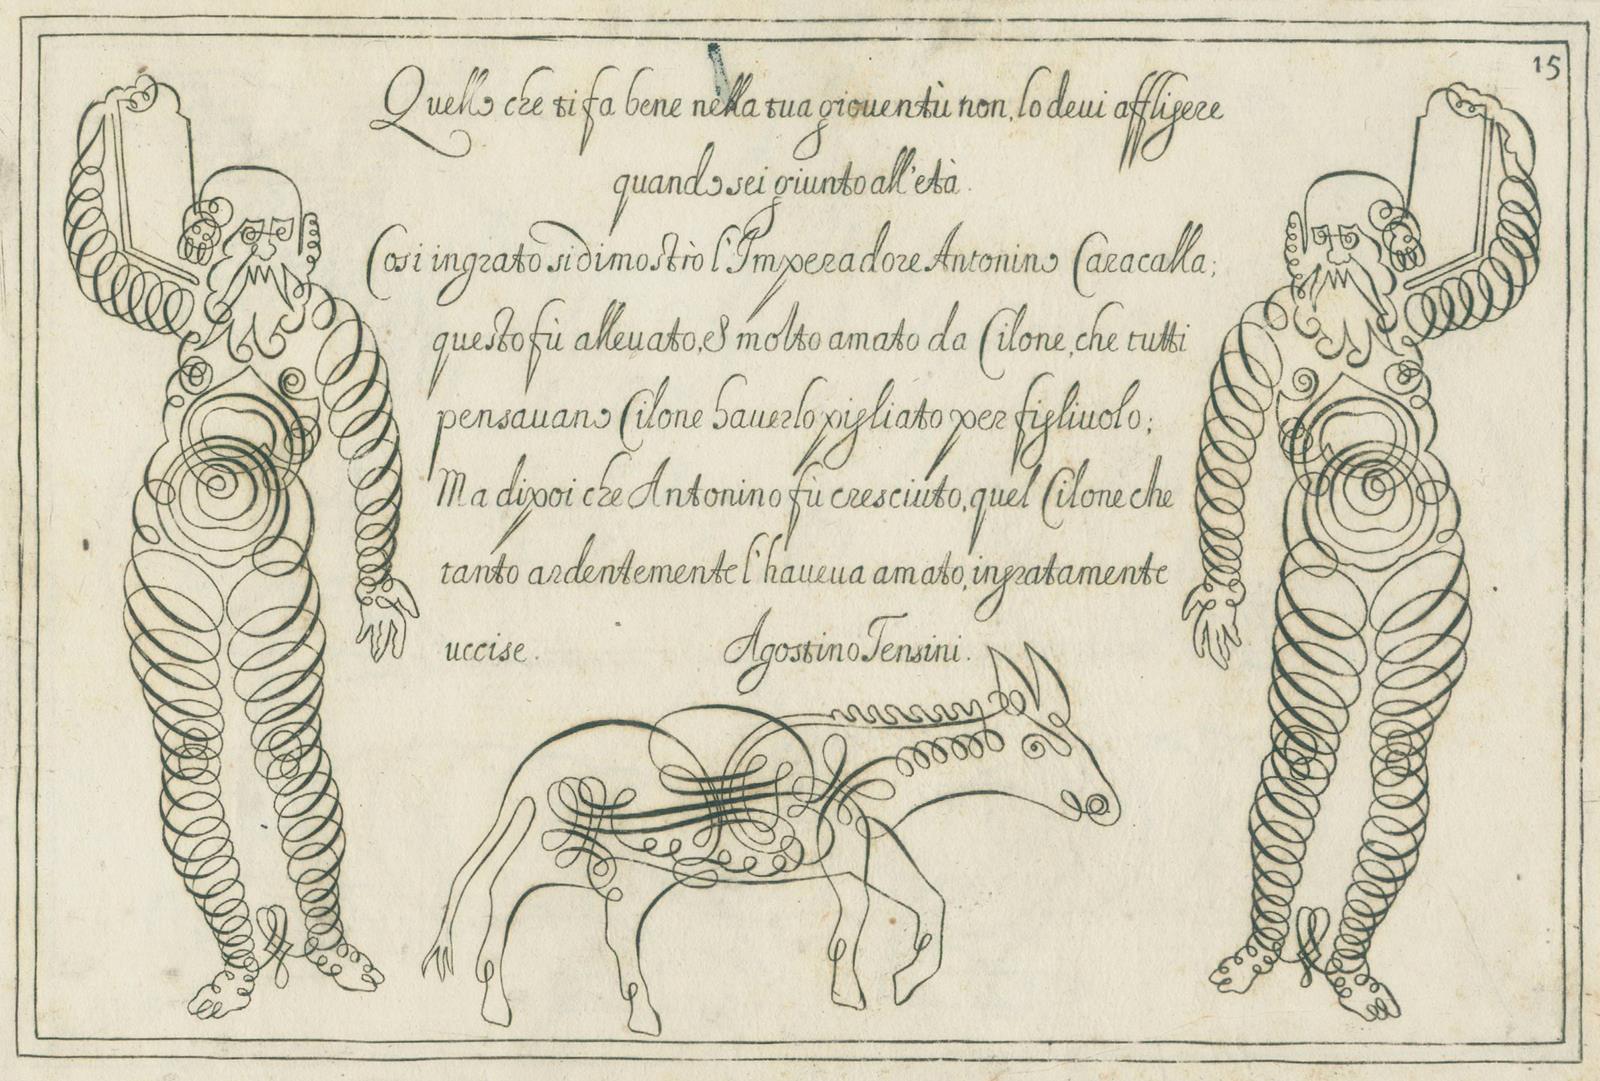 15
Quello che ti fa bene nella tua gioventù non, lo devi affligere
quando sei giunto all'età.
Cosi ingrato si dimostrò l'Imperadore Antonino Caracalla;
questo fù alleuato, & molto amato da Cilone, che tutti
pensauano Cilone hauerlo pigliato per figliuolo;
Ma dipoi che Antonino fù cresciuto, quel Cilone che
tanto ardentemente l'haueua amato, ingratamente
uccise. Agostino Tensini.